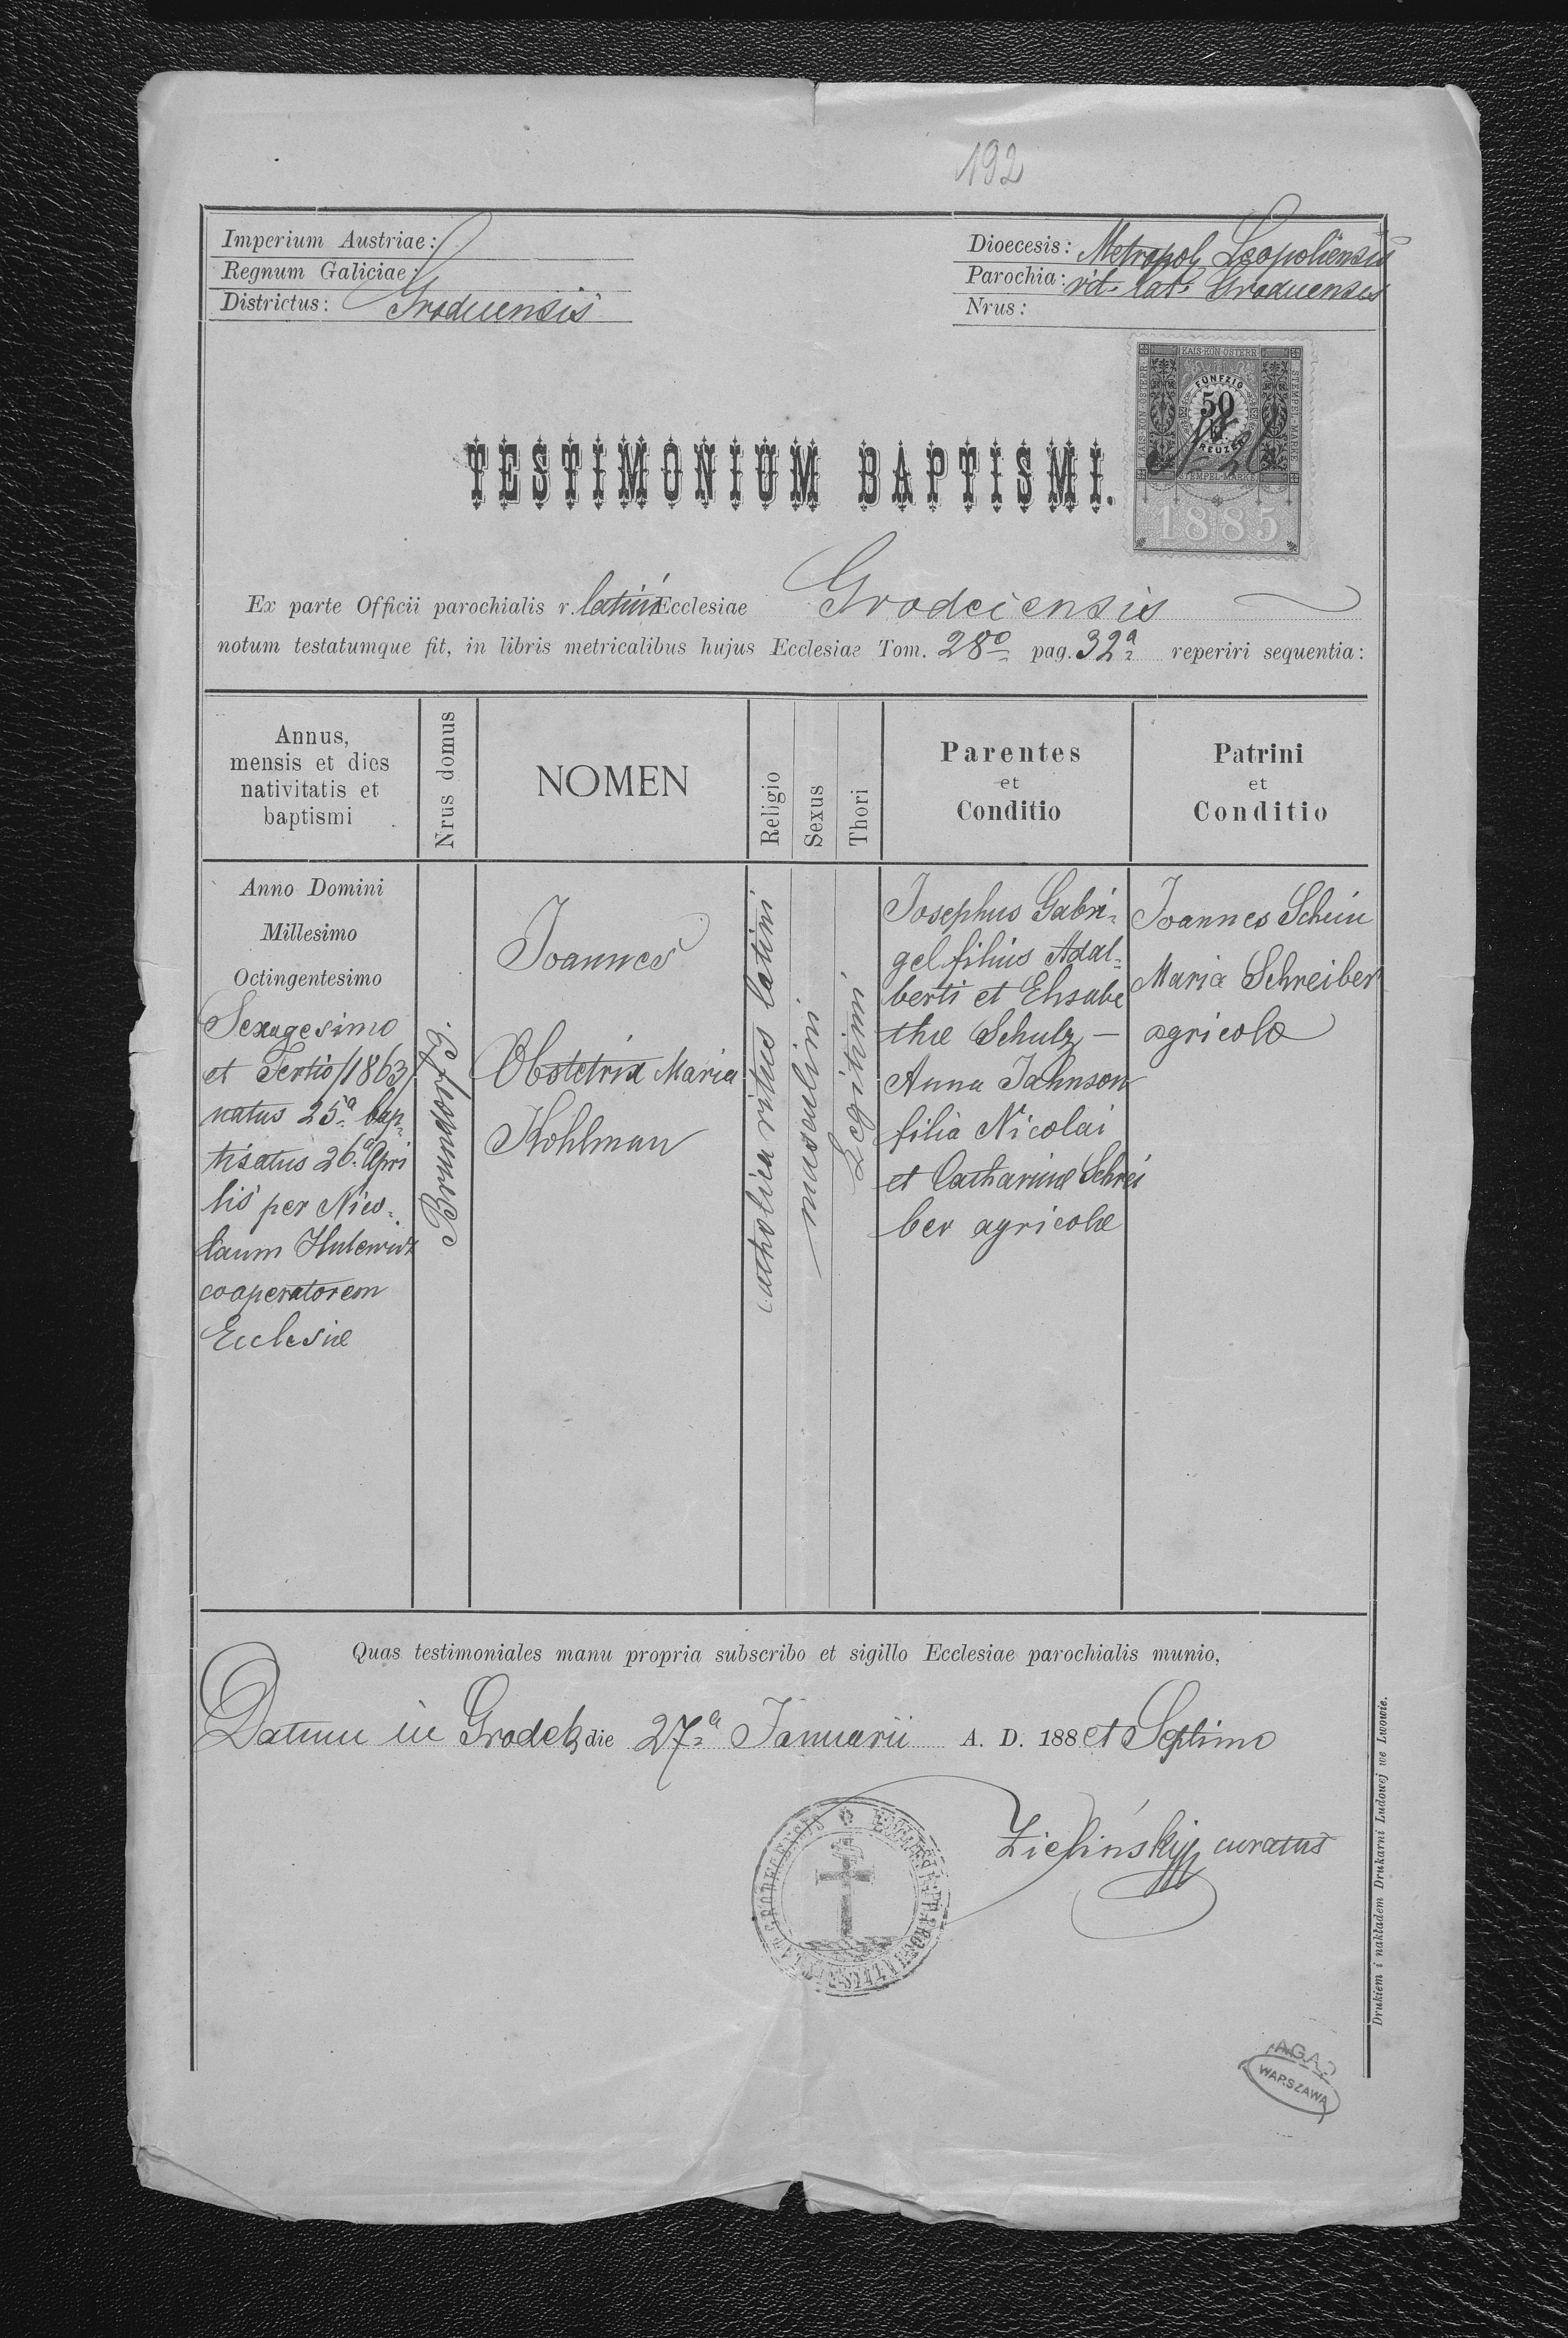 192
Imperium Austriae:
Regnum Galiciae:
Districtus: Grodecensis
Dioecesis: Metropol. Leopoliensis
Parochia: rit. lat. Grodecensis
Nrus:
KAIS. KÖN. ÖSTERR.
STEMPEL-MARKE
FÜNFZIG
50
KREUZER
STEMPEL-MARKE
1885
TESTIMONIUM BAPTISMI.
Ex parte Officii parochialis r. latini Ecclesiae Grodeciensis
notum testatumque fit, in libris metricalibus hujus Ecclesiae Tom. 28o pag. 32a reperiri sequentia:
Annus,
mensis et dies
nativitatis et
baptismi
Nrus domus
NOMEN
Religio
Sexus
Thori
Parentes
et
Conditio
Patrini
et
Conditio
Anno Domini
Millesimo
Octingentesimo
Sexagesimo
et Tertio /1863/
natus 25a bap-
tisatus 26a Apri
lis per Nico-
laum Hulewicz
cooperatorem
Ecclesiæ
Brundorf 9.
Joannes
Obstetrix Maria
Kohlman
catholica ritus latini
masculini
Legitimi
Josephus Gabri-
gel filius Adal-
berti et Elisabe
thæ Schulz —
Anna Jahnson
filia Nicolai
et Catharinæ Schrei
ber agricolæ
Joannes Schein
Maria Schreiber
agricolæ
Quas testimoniales manu propria subscribo et sigillo Ecclesiae parochialis munio,
Datum in Grodek die 27a Januarii A. D. 188 et Septimo
Zieliński curatus
Drukiem i nakładem Drukarni Ludowej we Lwowie.
AGAD
WARSZAWA